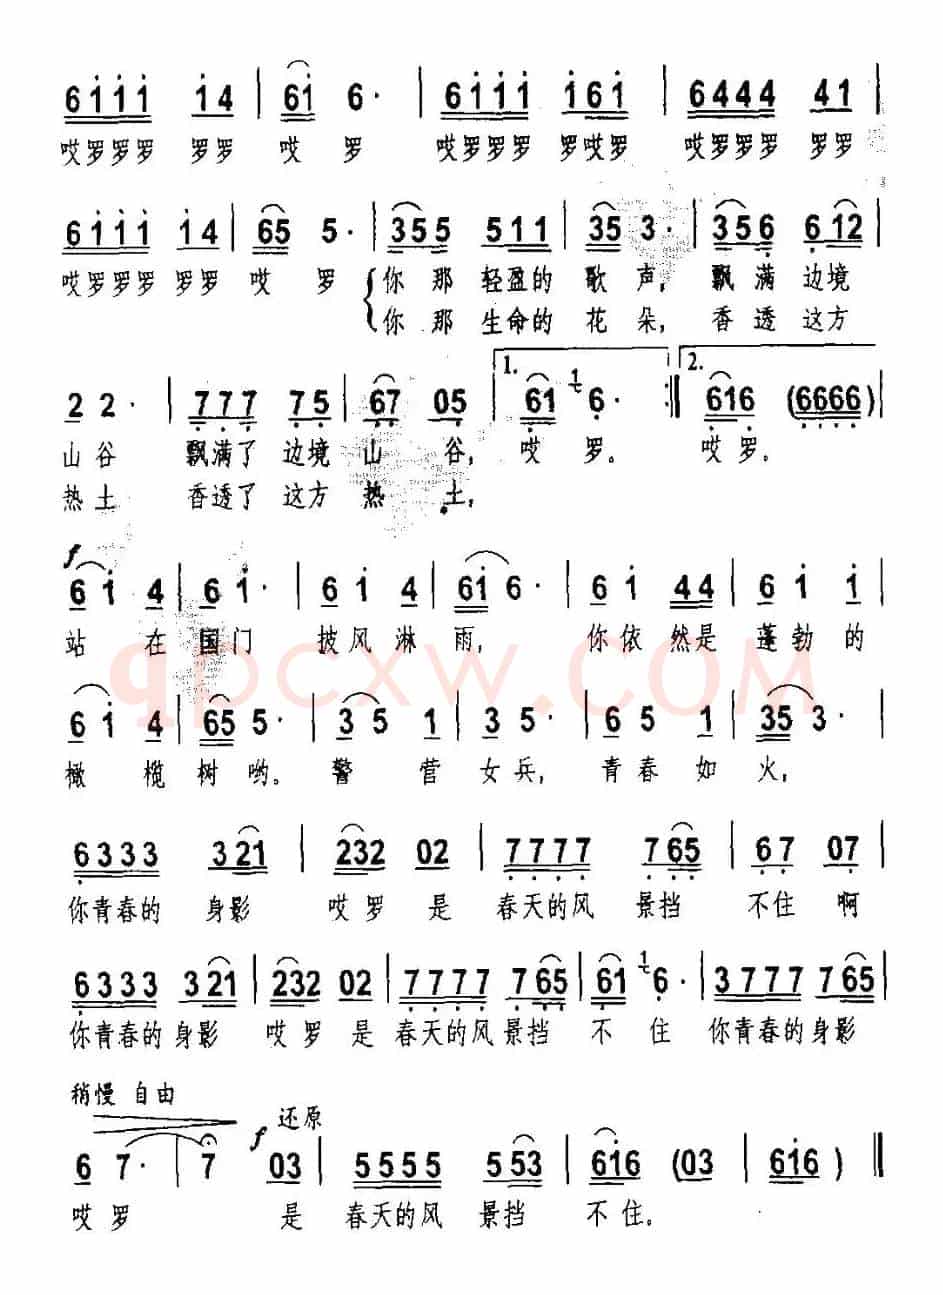 6111 14 | 61 6· | 6111 161 | 6444 41 |
哎罗罗罗 罗罗 哎 罗 哎罗罗罗 罗哎罗 哎罗罗罗 罗罗
6111 14 | 65 5· | 355 511 | 35 3· | 356 612 |
哎罗罗罗 罗罗 哎 罗 你 那 轻盈的 歌 声, 飘 满 边境
你 那 生命的 花 朵, 香 透 这方
1. 2.
2 2· | 777 75 | 67 05 | 61 6· :‖ 616 (6666 |
山谷 飘满了 边境 山 谷, 哎 罗。 哎 罗。
热土 香透了 这方 热 土,
f
6 1 4 | 6 1· | 6 1 4 | 61 6· | 6 1 44 | 6 1 1 |
站 在 国门 披风淋 雨, 你依 然是 蓬 勃 的
qpcxw.com
6 1 4 | 65 5· | 3 5 1 | 3 5· | 6 5 1 | 35 3· |
橄 榄 树 哟。 警 营 女兵, 青春 如 火,
6333 321 | 232 02 | 7777 765 | 67 07 |
你青春的 身影 哎罗 是 春天的风 景挡 不住 啊
6333 321 | 232 02 | 7777 765 | 61 6· | 3777 765 |
你青春的 身影 哎 罗 是 春天的风 景挡 不 住 你青春的 身影
稍慢 自由
f 还原
6 7· | 7 03 | 5555 553 | 616 (03 | 616 ) ‖
哎 罗 是 春天的风 景挡 不 住。